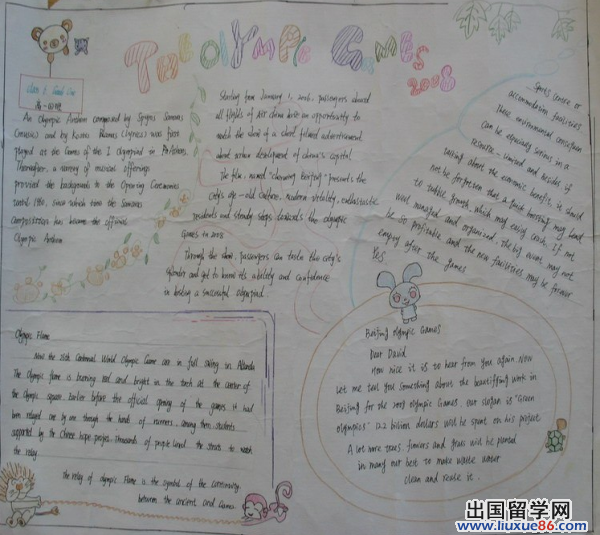 The Olympic Games
2008
An Olympic Anthem composed by Spyros Samaras
(music) and by Kostis Palamas (lyrics) was first
played at the Games of the I Olympiad in
Thereafter, a variety of musical offerings
provided the background to the Opening Ceremonies
until 1960, since which time the Samaras
composition has became the official
Olympic Anthem
Starting from January 1, 2006, passengers aboard
all flights of air china have an opportunity to
watch the show of a short filmed advertisement
about urban development of china's capital
The film, named "charming Beijing" presents the
city's age-old culture, modern vitality, enthusiastic
residents and steady steps towards the olympic
Games in 2008
Through the show, passengers can taste the city's
splendor and get to know its ability and confidence
in hosting a successful olympiad.
Sports Centre or
accommodation facilities
These environmental
can be especially serious in a
resource limited and besides of
talking about the economic benefits, it should
not be forgotten that a quick booming may lead
to bubble growth which may easily crash. If not
well managed and organized, the big event may not
be so profitable and the new facilities may be forever
empty after the games
Yes
Olympic Flame
Now the 26th Centennial World Olympic Game are in full swing in Atlanta
The Olympic flame is burning red and bright in the torch at the center of
the Olympic square. Earlier before the official opening of the games it had
been relayed one by one through the hands of runners, among them students
supported by the Chinese hope project. Thousands of people lined the streets to watch
the relay.
the relay of olympic Flame is the symbol of the continuity
between the ancient and Games
Beijing Olympic Games
Dear David
How nice it is to hear from you again. Now
Let me tell you something about the beautifying work in
Beijing for the 2008 olympic Games. Our slogan is "Green
olympics" 12.2 billion dollars will be spent on his project
A lot more trees, flowers and grass will be planted
in many our best to make waste water
clean and reuse it.
出国留学网
www.liuxue86.com